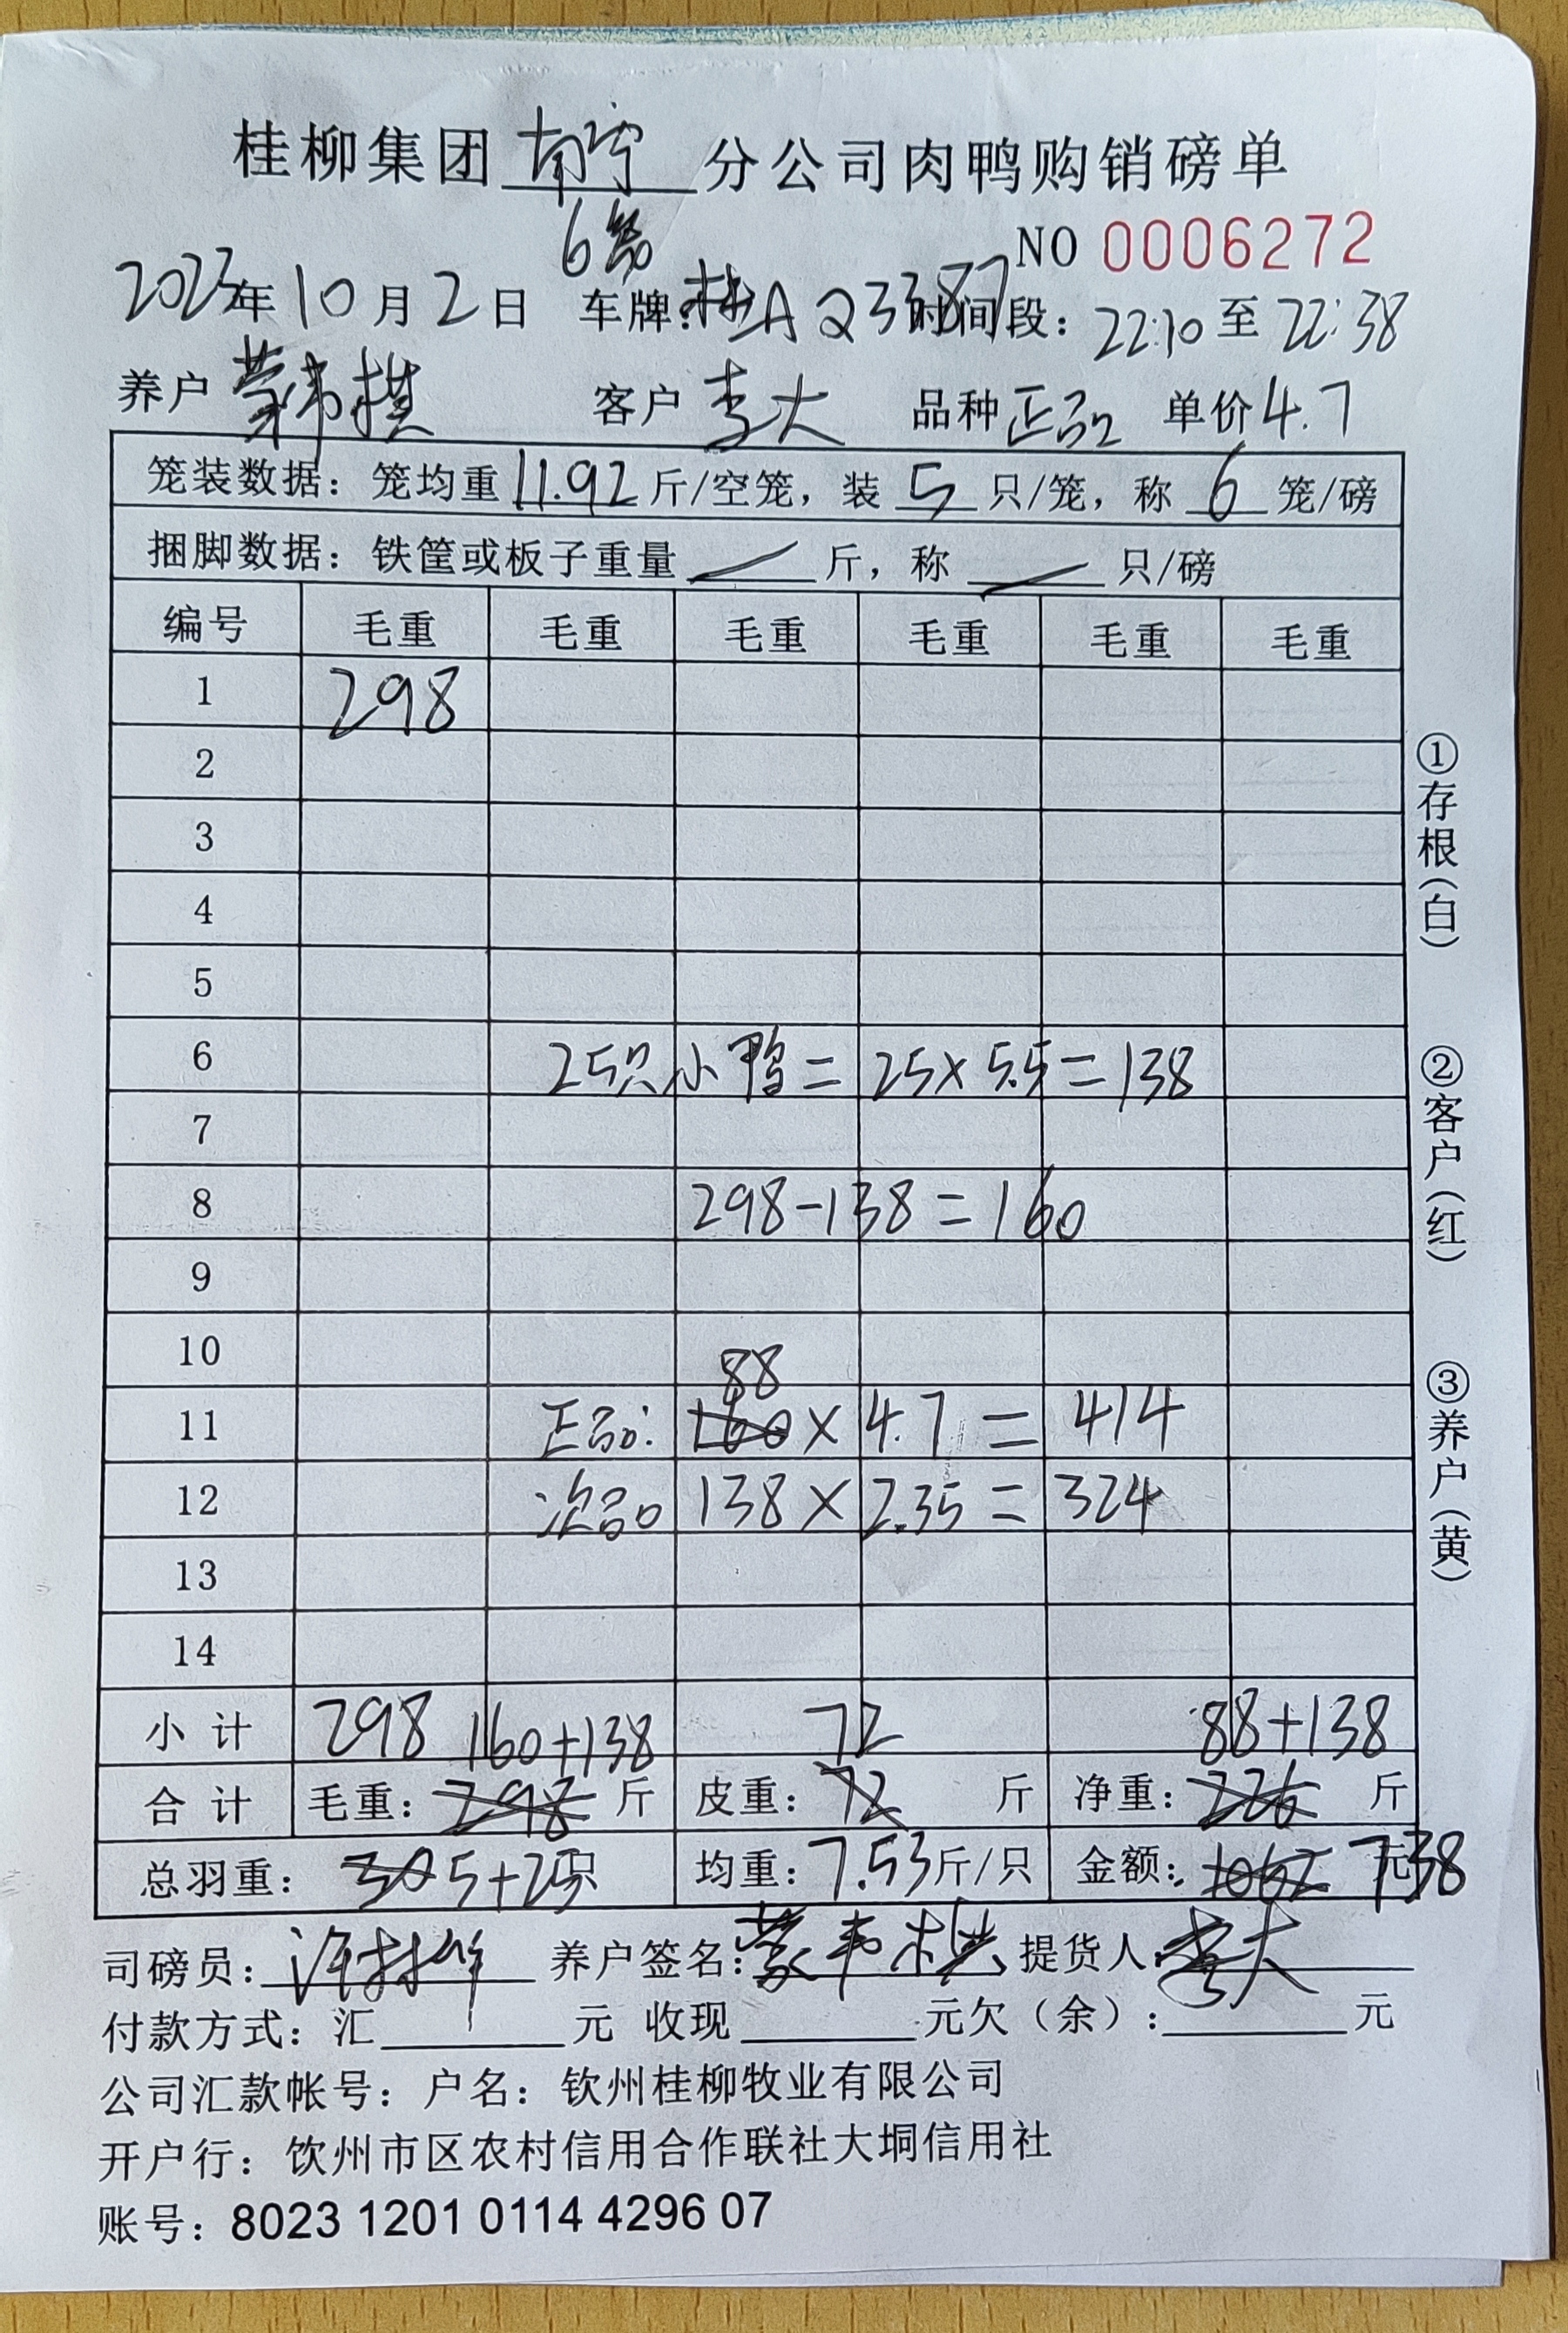 桂柳集团南宁分公司肉鸭购销磅单
6笼
NO 0006272
2023年10月2日 车牌:桂AQ3387 时间段:22:10至22:38
养户 蒙韦棋 客户 李大 品种 正品 单价4.7
笼装数据:笼均重11.92斤/空笼,装5只/笼,称6笼/磅
捆脚数据:铁筐或板子重量 / 斤,称 / 只/磅
编号 毛重 毛重 毛重 毛重 毛重 毛重
1 298
2
3
4
5
6 25只小鸭=25×5.5=138
7
8 298-138=160
9
10
88
11 正品:160×4.7=414
12 次品 138×2.35=324
13
14
小计 298 160+138 72 88+138
合计 毛重:298斤 皮重:72斤 净重:226斤
总羽重:30 5+25只 均重:7.53斤/只 金额:1062 738元
司磅员: 养户签名:蒙韦棋 提货人:李大
付款方式:汇 元 收现 元欠(余): 元
公司汇款帐号:户名:钦州桂柳牧业有限公司
开户行:饮州市区农村信用合作联社大垌信用社
账号:8023 1201 0114 4296 07
①存根(白)
②客户(红)
③养户(黄)